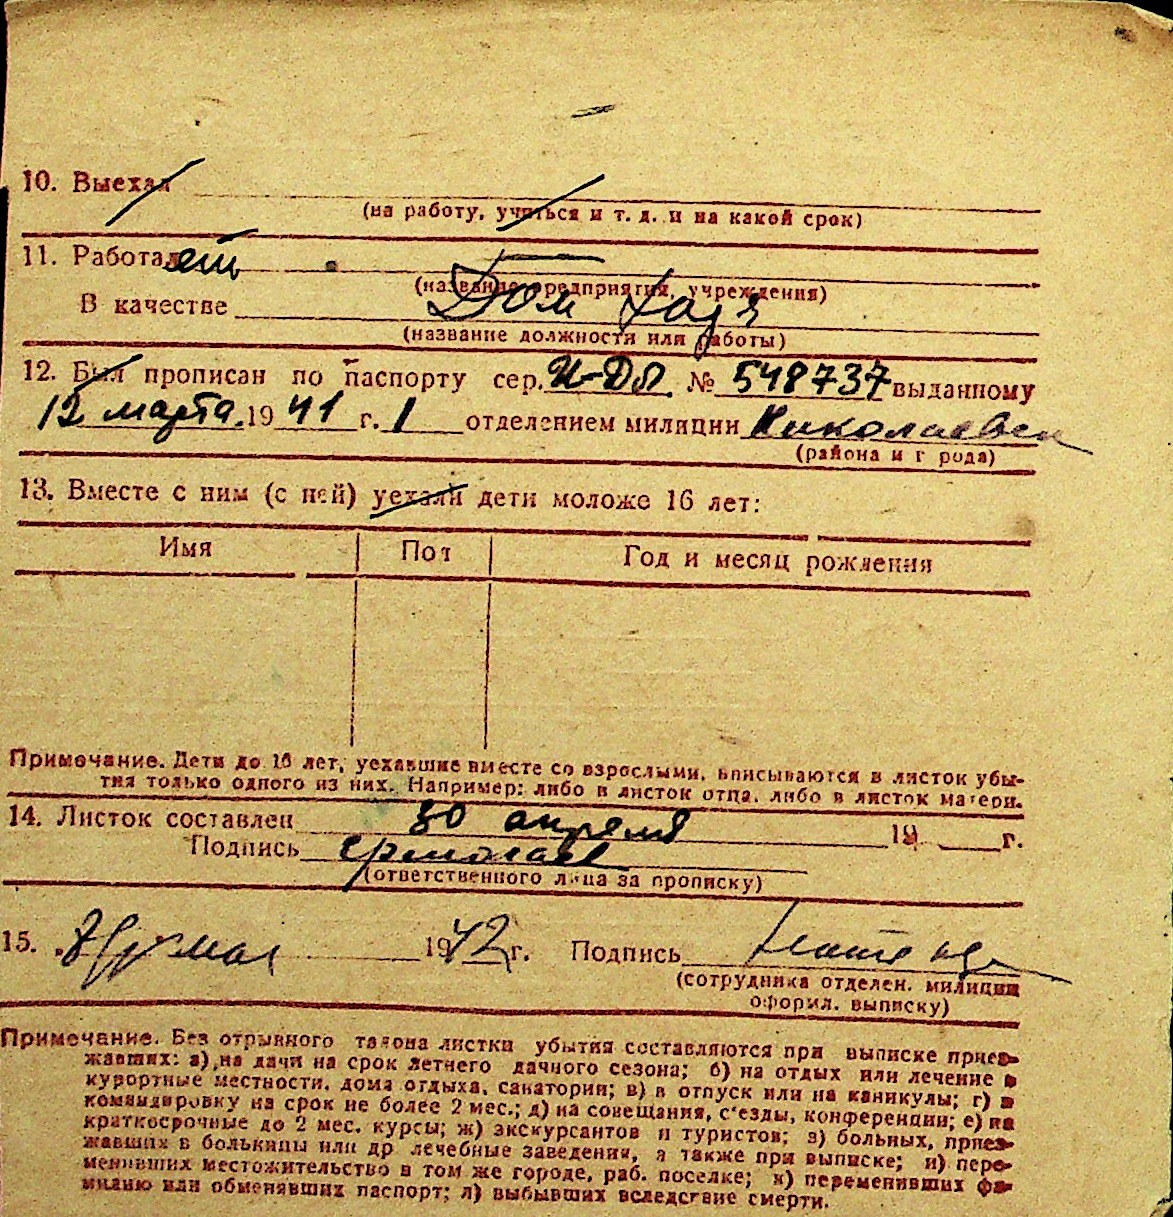 10. Выехал
(на работу, учиться и т. д. и на какой срок)
11. Работает
(название предприятия, учреждения)
В качестве Дом хозя
(название должности или работы)
12. Был прописан по паспорту сер. № 548737 выданному
12 марта 1941 г. 1 отделением милиции Николаевск
(района и г рода)
13. Вместе с ним (с ней) уехали дети моложе 16 лет:
Имя Пол Год и месяц рождения
Примечание. Дети до 16 лет, уехавшие вместе со взрослыми, вписываются в листок убы-
тия только одного из них. Например: либо в листок отца, либо в листок матери.
14. Листок составлен 30 апреля 19 г.
Подпись
(ответственного лица за прописку)
15. мая 1942 г. Подпись
(сотрудника отделен. милиции
оформл. выписку)
Примечание. Без отрывного талона листки убытия составляются при выписке приез-
жавших: а) на дачи на срок летнего дачного сезона; б) на отдых или лечение в
курортные местности, дома отдыха, санатории; в) в отпуск или на каникулы; г) в
командировку на срок не более 2 мес.; д) на совещания, с'езды, конференции; е) на
краткосрочные до 2 мес. курсы; ж) экскурсантов и туристов; з) больных, приез-
жавших в больницы или др лечебные заведения, а также при выписке; и) пере-
менивших местожительство в том же городе, раб. поселке; к) переменивших фа-
милию или обменявших паспорт; л) выбывших вследствие смерти.